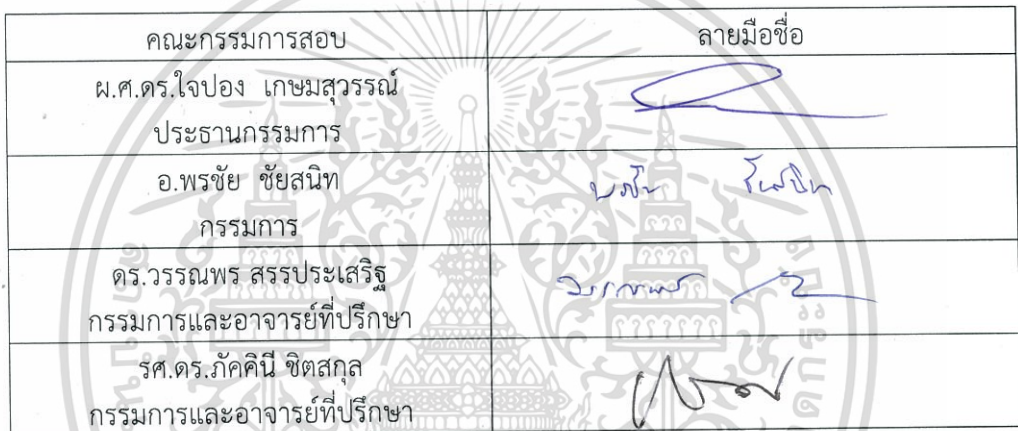 คณะกรรมการสอบ ลายมือชื่อ
ผ.ศ.ดร.ใจปอง เกษมสุวรรณ์
ประธานกรรมการ
อ.พรชัย ชัยสนิท
กรรมการ
ดร.วรรณพร สรรประเสริฐ
กรรมการและอาจารย์ที่ปรึกษา
รศ.ดร.ภัคคินี ชิตสกุล
กรรมการและอาจารย์ที่ปรึกษา